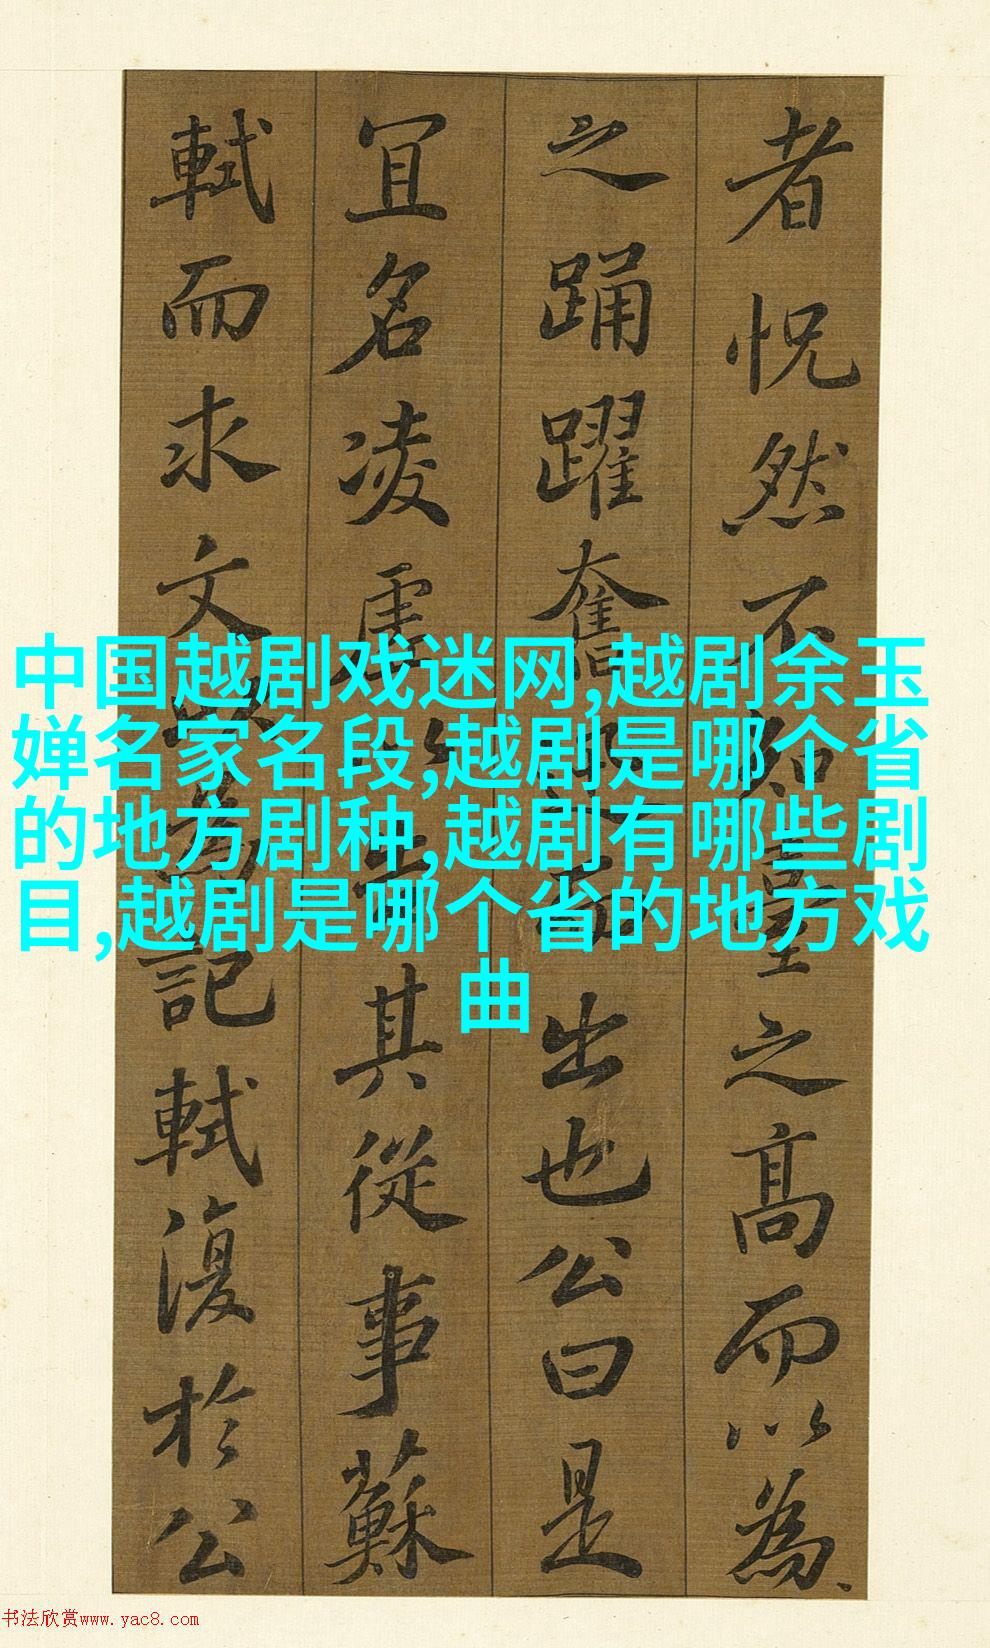 者怳然不知臺之高而以為
之踊躍奮而出也公曰是
冝名凌虛以告其從事蘇
軾而求文以為記軾復於公
中国越剧戏迷网,越剧余玉
婵名家名段,越剧是哪个省
的地方剧种,越剧有哪些剧
目,越剧是哪个省的地方戏
曲
书法欣赏www.yac8.com